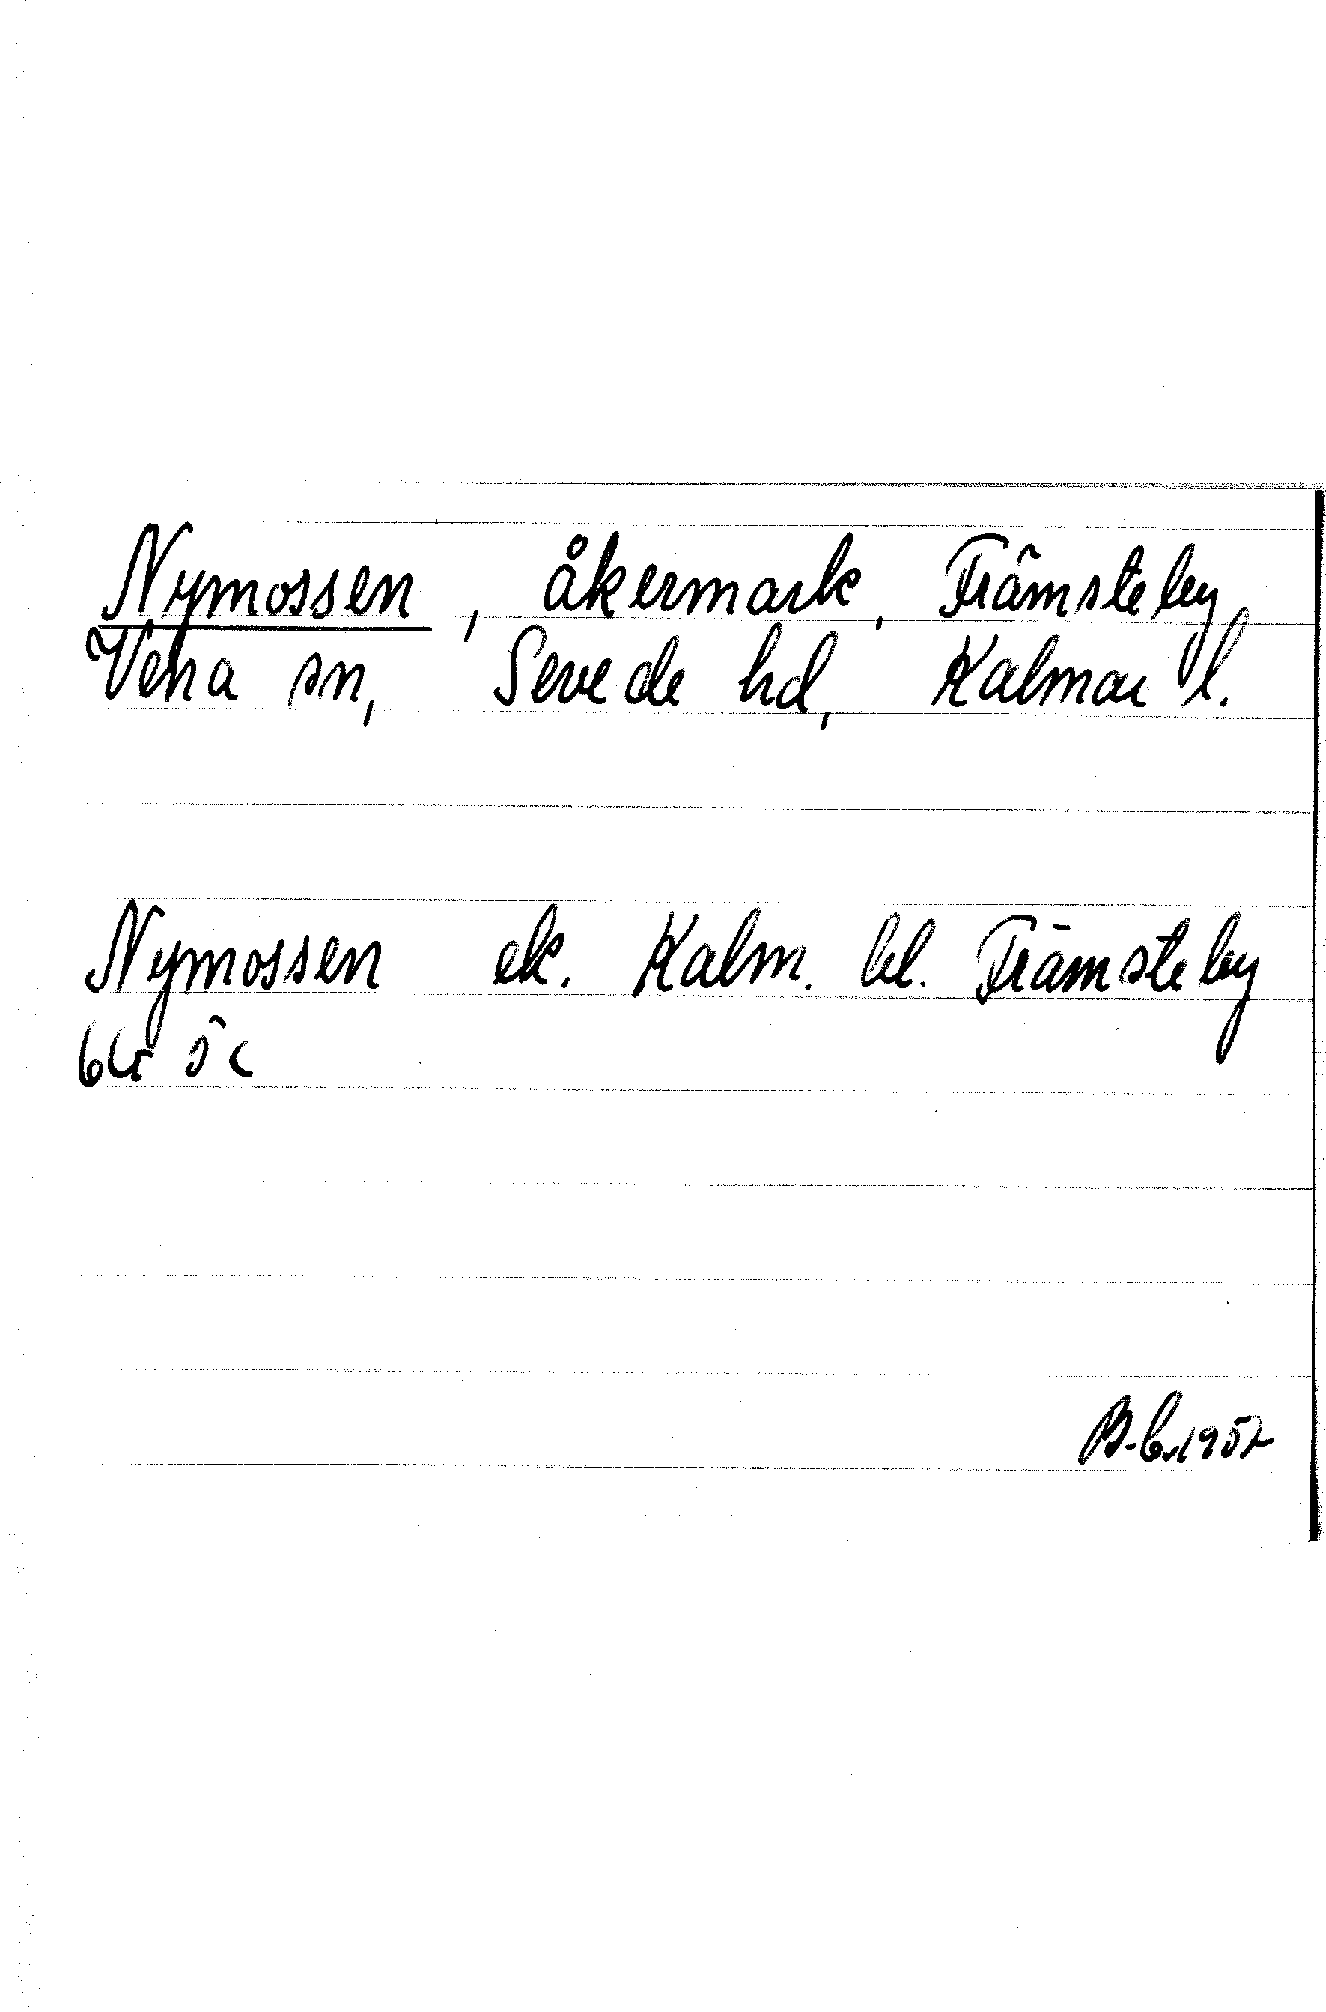 Nymossen, åkermark, Främsteby,
Vena sn, Sevede hd, Kalmar l.
Nymossen ek. Kalm. bl. Främsteby
6G 5c
1952